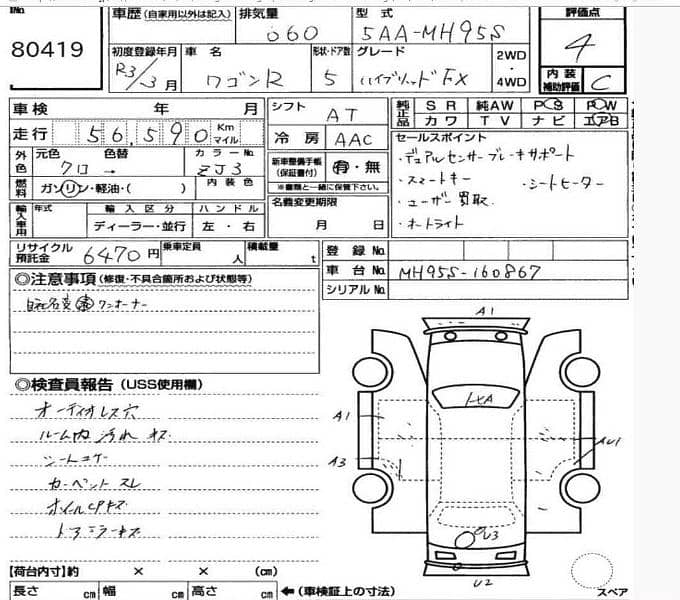 80419
車歴(自家用以外は記入)
排気量 660
型式 5AA-MH95S
評価点 4
初度登録年月 R3/3月
車名 ワゴンR
形状・ドア数 5
グレード ハイブリッドFX
2WD・4WD
内装補助評価 C
車検 年 月
シフト AT
純正品 SR 純AW PS PW
カワ TV ナビ エアB
走行 56,590 Km マイル
冷房 AAC
セールスポイント
・デュアルセンサーブレーキサポート
・スマートキー ・シートヒーター
・ユーザー買取.
・オートライト
外色 元色 クロ → 色替 カラーNo. ZJ3
新車整備手帳(保証書付) 有・無
※書類と一緒に保管下さい。
燃料 ガソリン・軽油・( ) 内装色
名義変更期限
月 日
輸入車用 年式 輸入区分 ハンドル
ディーラー・並行 左・右
リサイクル預託金 6470円
乗車定員 人
積載量 t
登録No.
車台No. MH95S-160867
シリアルNo.
◎注意事項(修復・不具合箇所および状態等)
ワンオーナー
◎検査員報告(USS使用欄)
オーディオレス穴
ルーム内 汚れ キズ
シートコゲ
カーペット スレ
ホイルCPキズ
ドアミラーキズ
A1
A1
A3
AU1
U3
U2
スペア
【荷台内寸】約 × × (cm)
長さ cm 幅 cm 高さ cm ←(車検証上の寸法)